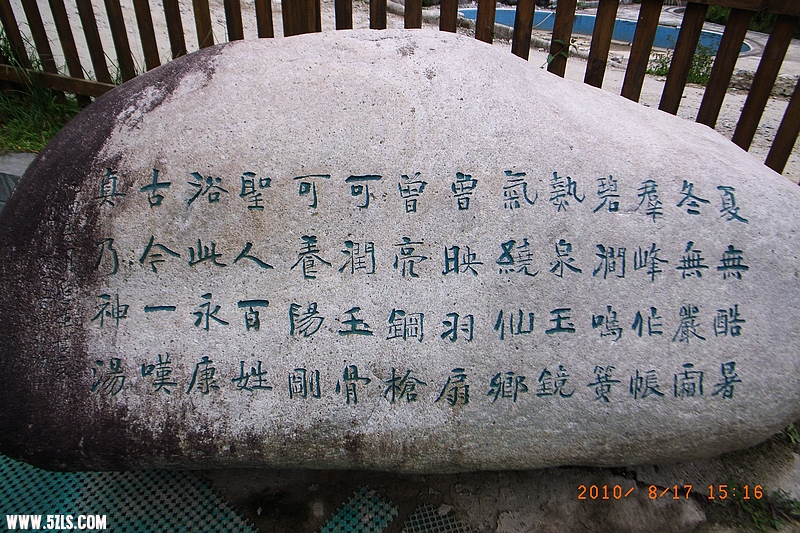 夏無酷暑
冬無嚴霜
羣峰作帳
碧澗鳴簧
熱泉玉鏡
氣繞仙鄉
曾映羽扇
曾亮鋼槍
可潤玉骨
可養陽剛
聖人百姓
浴此永康
古今一嘆
真乃神湯
2010/ 8/17 15:16
WWW.5ZLS.COM